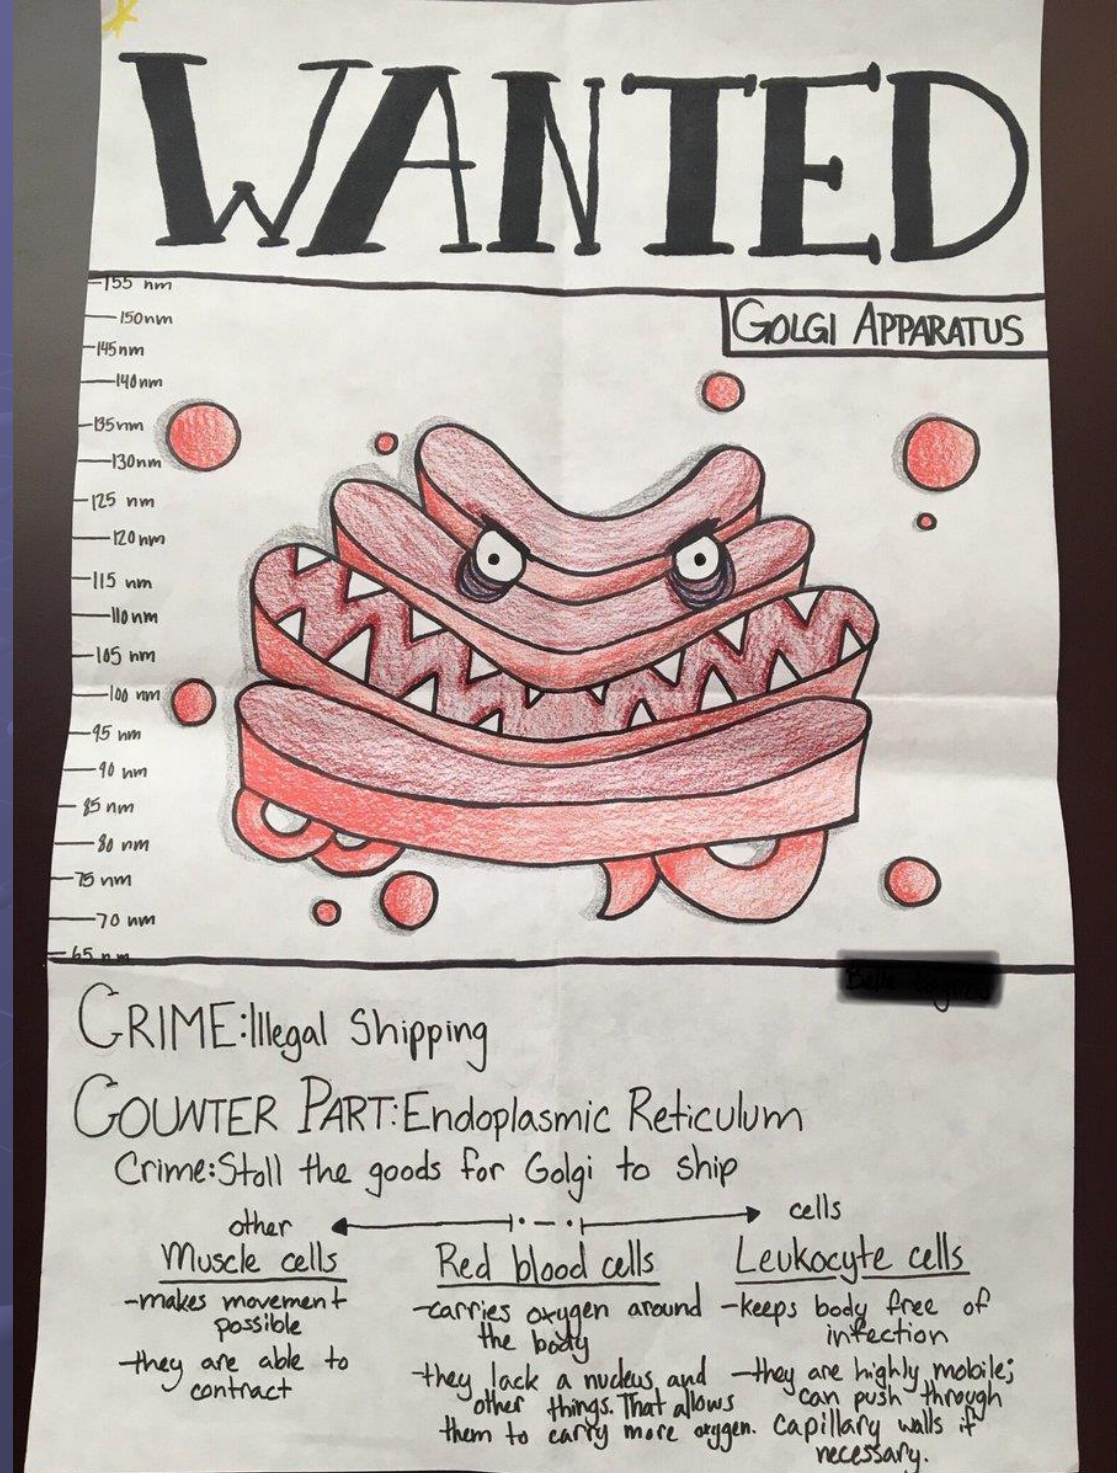 WANTED
155 nm
GOLGI APPARATUS
150nm
145nm
140nm
135nm
130nm
125 nm
120nm
115 nm
110nm
105 nm
100 nm
95 nm
90 nm
85 nm
80 nm
75 nm
70 nm
65 nm
CRIME: Illegal Shipping
COUNTER PART: Endoplasmic Reticulum
Crime: Stoll the goods for Golgi to ship
other cells
Muscle cells
-makes movement
possible
-they are able to
contract
Red blood cells
-carries oxygen around
the body
-they lack a nucleus and
other things. That allows
them to carry more oxygen.
Leukocyte cells
-keeps body free of
infection
-they are highly mobile;
can push through
capillary walls if
necessary.